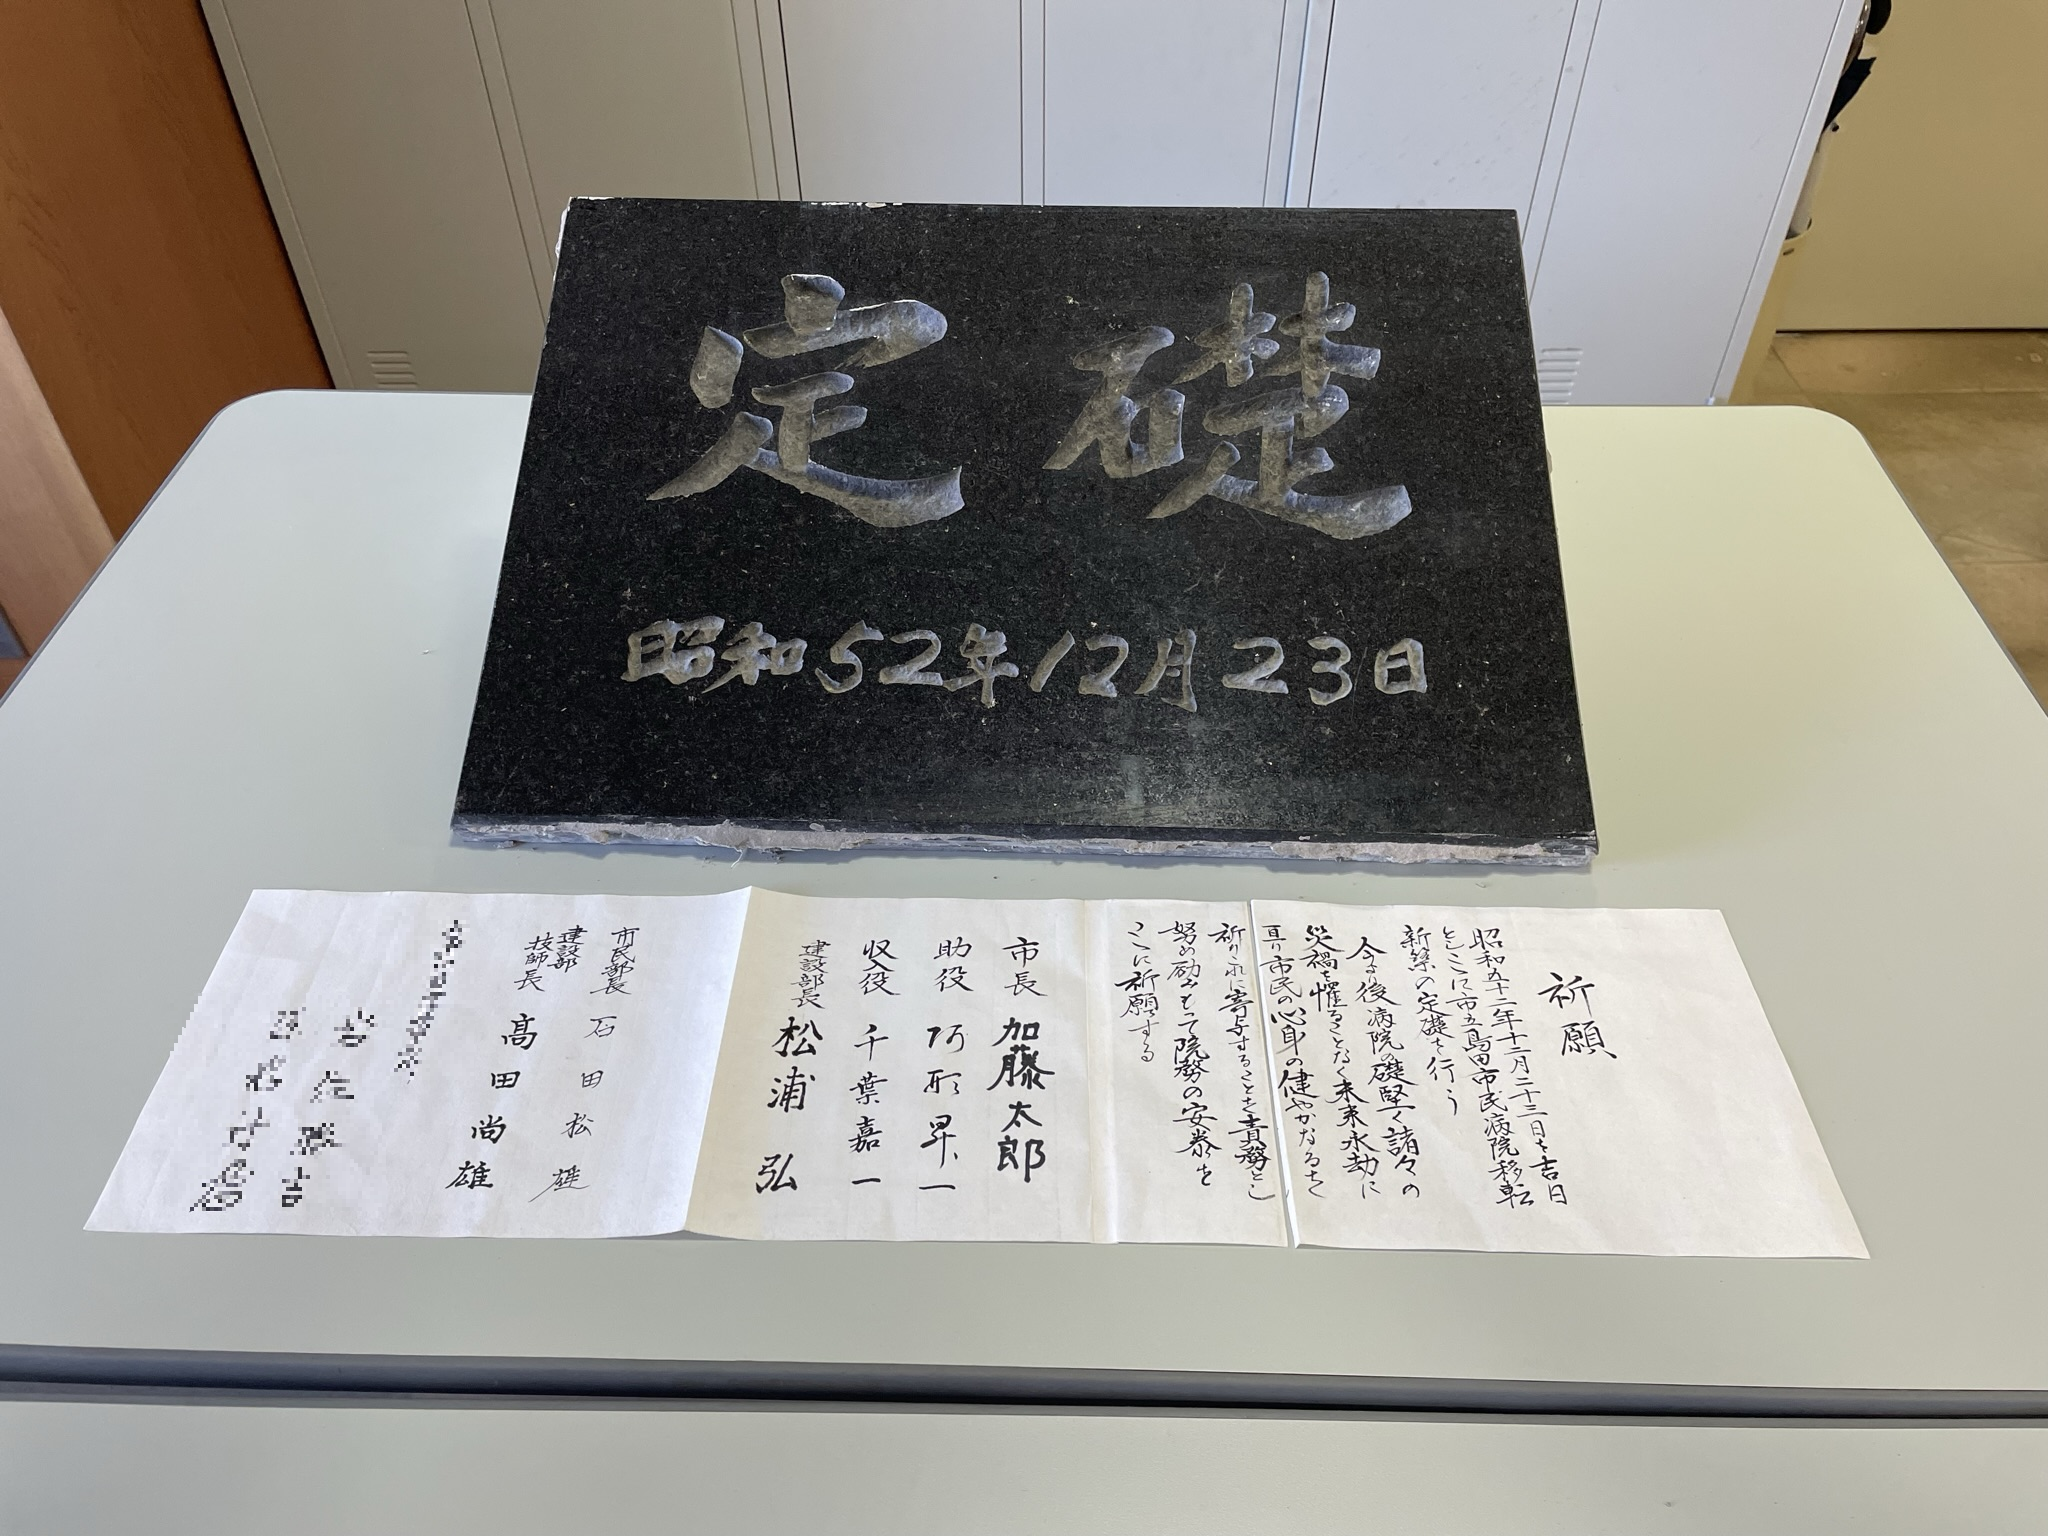 定礎
昭和52年12月23日
祈願
昭和五十二年十二月二十三日を吉日
としここに市立島田市民病院移転
新築の定礎を行う
今より後病院の礎堅く諸々の
災禍を懼ることなく未来永劫に
亘り市民の心身の健やかなるを
祈りこれに寄与することを責務とし
努め励みもって院務の安泰を
ここに祈願する
市長 加藤太郎
助役 阿形昇一
収入役 千葉嘉一
建設部長 松浦弘
市民部長 石田松雄
建設部技師長 高田尚雄